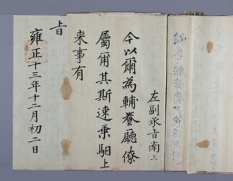 左副承旨南
今以爾為輔養廳僚
屬爾其斯速乗馹上
来事有
旨
雍正十三年十二月初二日